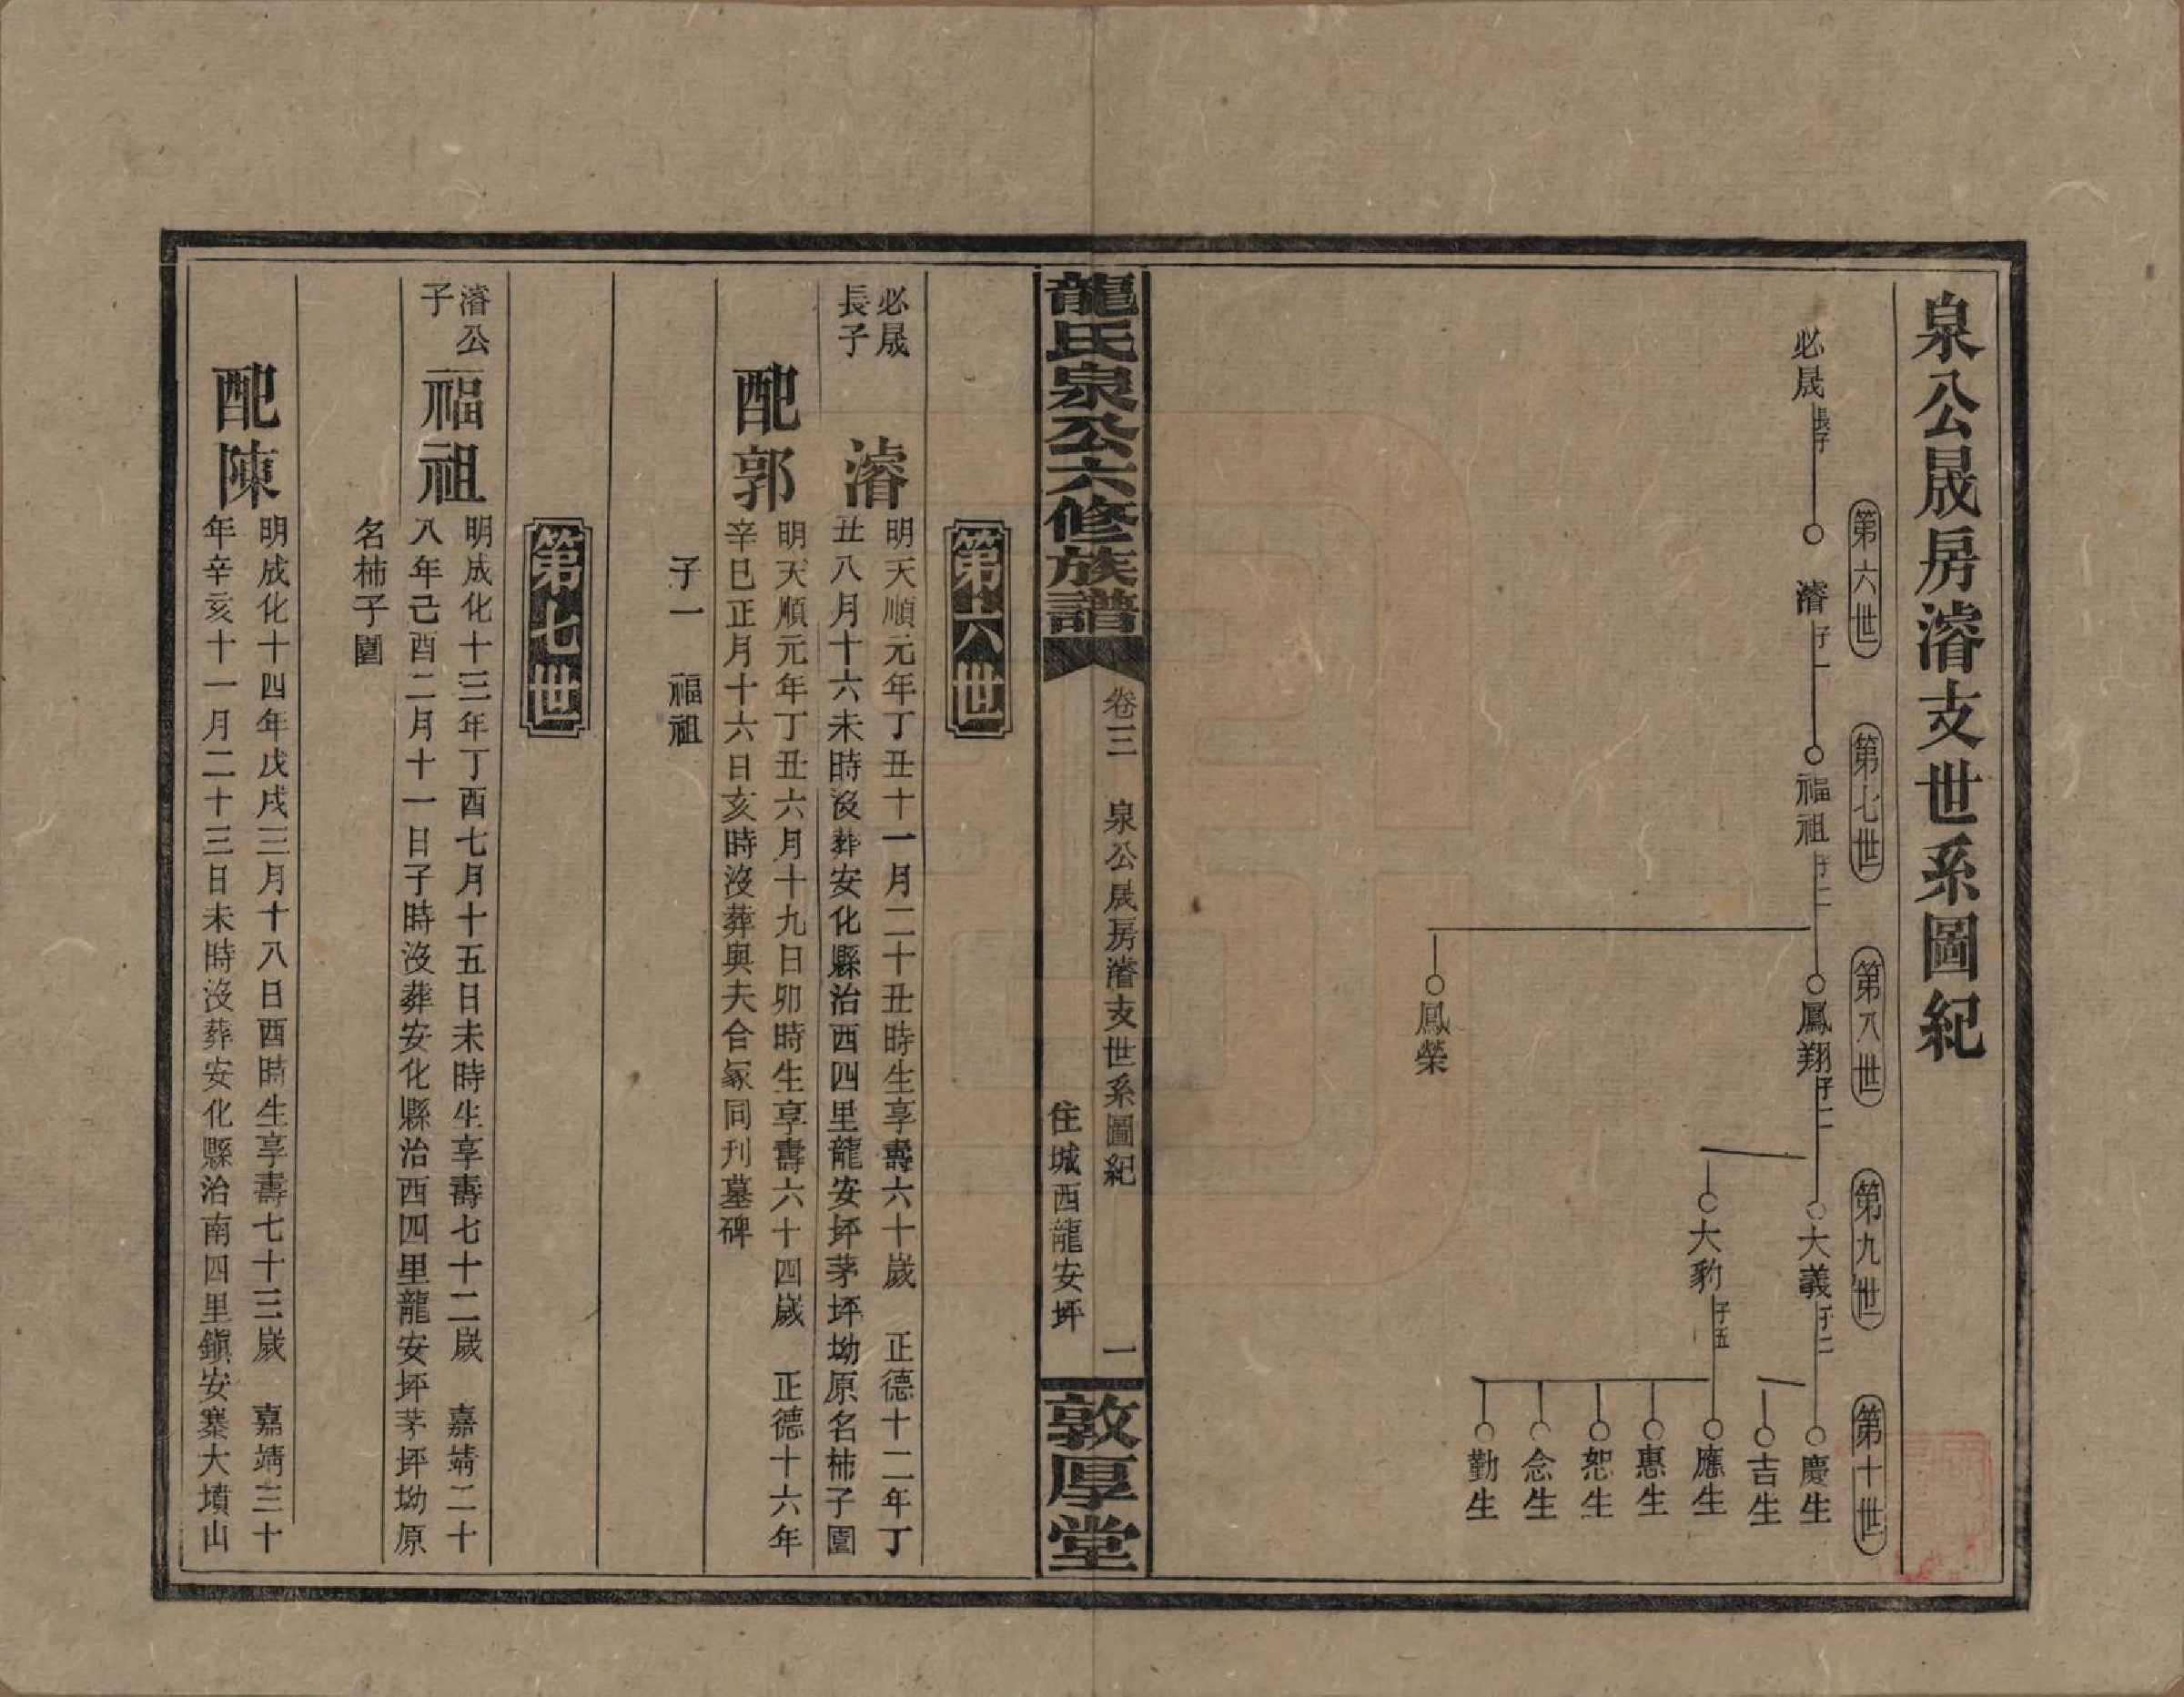 泉公晟房濬支世系圖紀
第六世
第七世
第八世
第九世
第十世
必晟
長子
濬
子一
福祖
子二
鳳翔
子二
大義
子二
慶生
吉生
大豹
子五
應生
惠生
恕生
念生
勤生
鳳榮
龍氏泉公六修族譜
卷三　泉公晟房濬支世系圖紀　一
住城西龍安坪
敦厚堂
第六世
必晟
長子
濬
明天順元年丁丑十一月二十丑時生享壽六十歲　正德十二年丁
丑八月十六未時沒葬安化縣治西四里龍安坪茅坪坳原名柿子園
配郭
明天順元年丁丑六月十九日卯時生享壽六十四歲　正德十六年
辛巳正月十六日亥時沒葬與夫合冢同刋墓碑
子一　福祖
第七世
濬公
子
福祖
明成化十三年丁酉七月十五日未時生享壽七十二歲　嘉靖二十
八年己酉二月十一日子時沒葬安化縣治西四里龍安坪茅坪坳原
名柿子園
配陳
明成化十四年戊戌三月十八日酉時生享壽七十三歲　嘉靖三十
年辛亥十一月二十三日未時沒葬安化縣治南四里鎭安寨大墳山